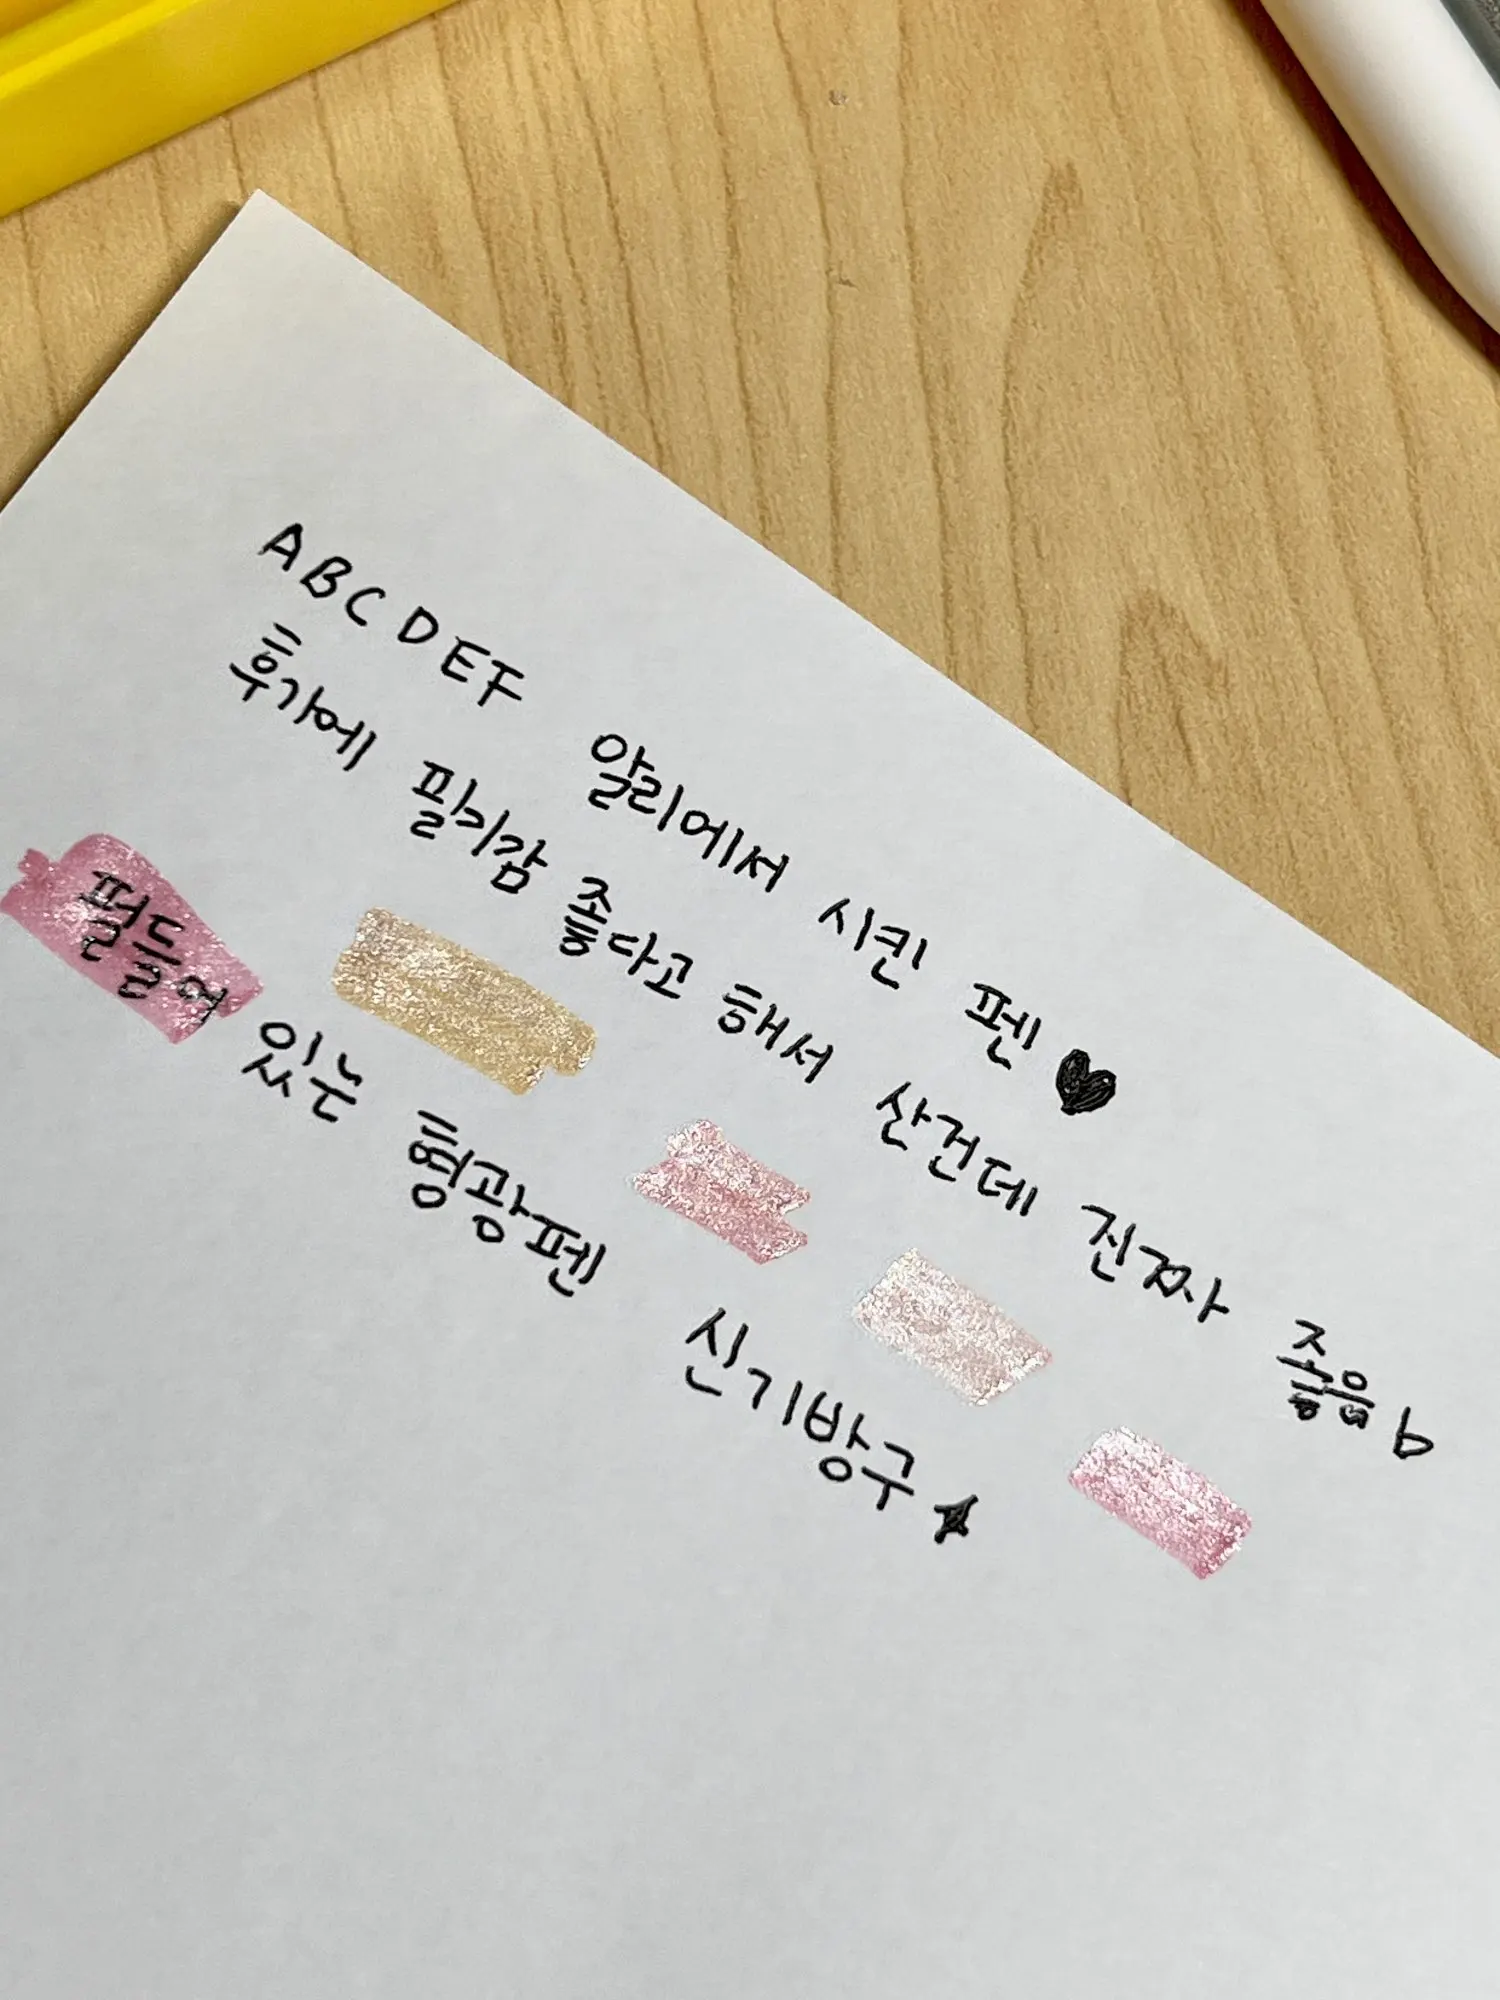 ABCDEF 알리에서 시킨 펜♥
후기에 필기감 좋다고 해서 산건데 진짜 좋음b
펄들어 있는 형광펜 신기방구★